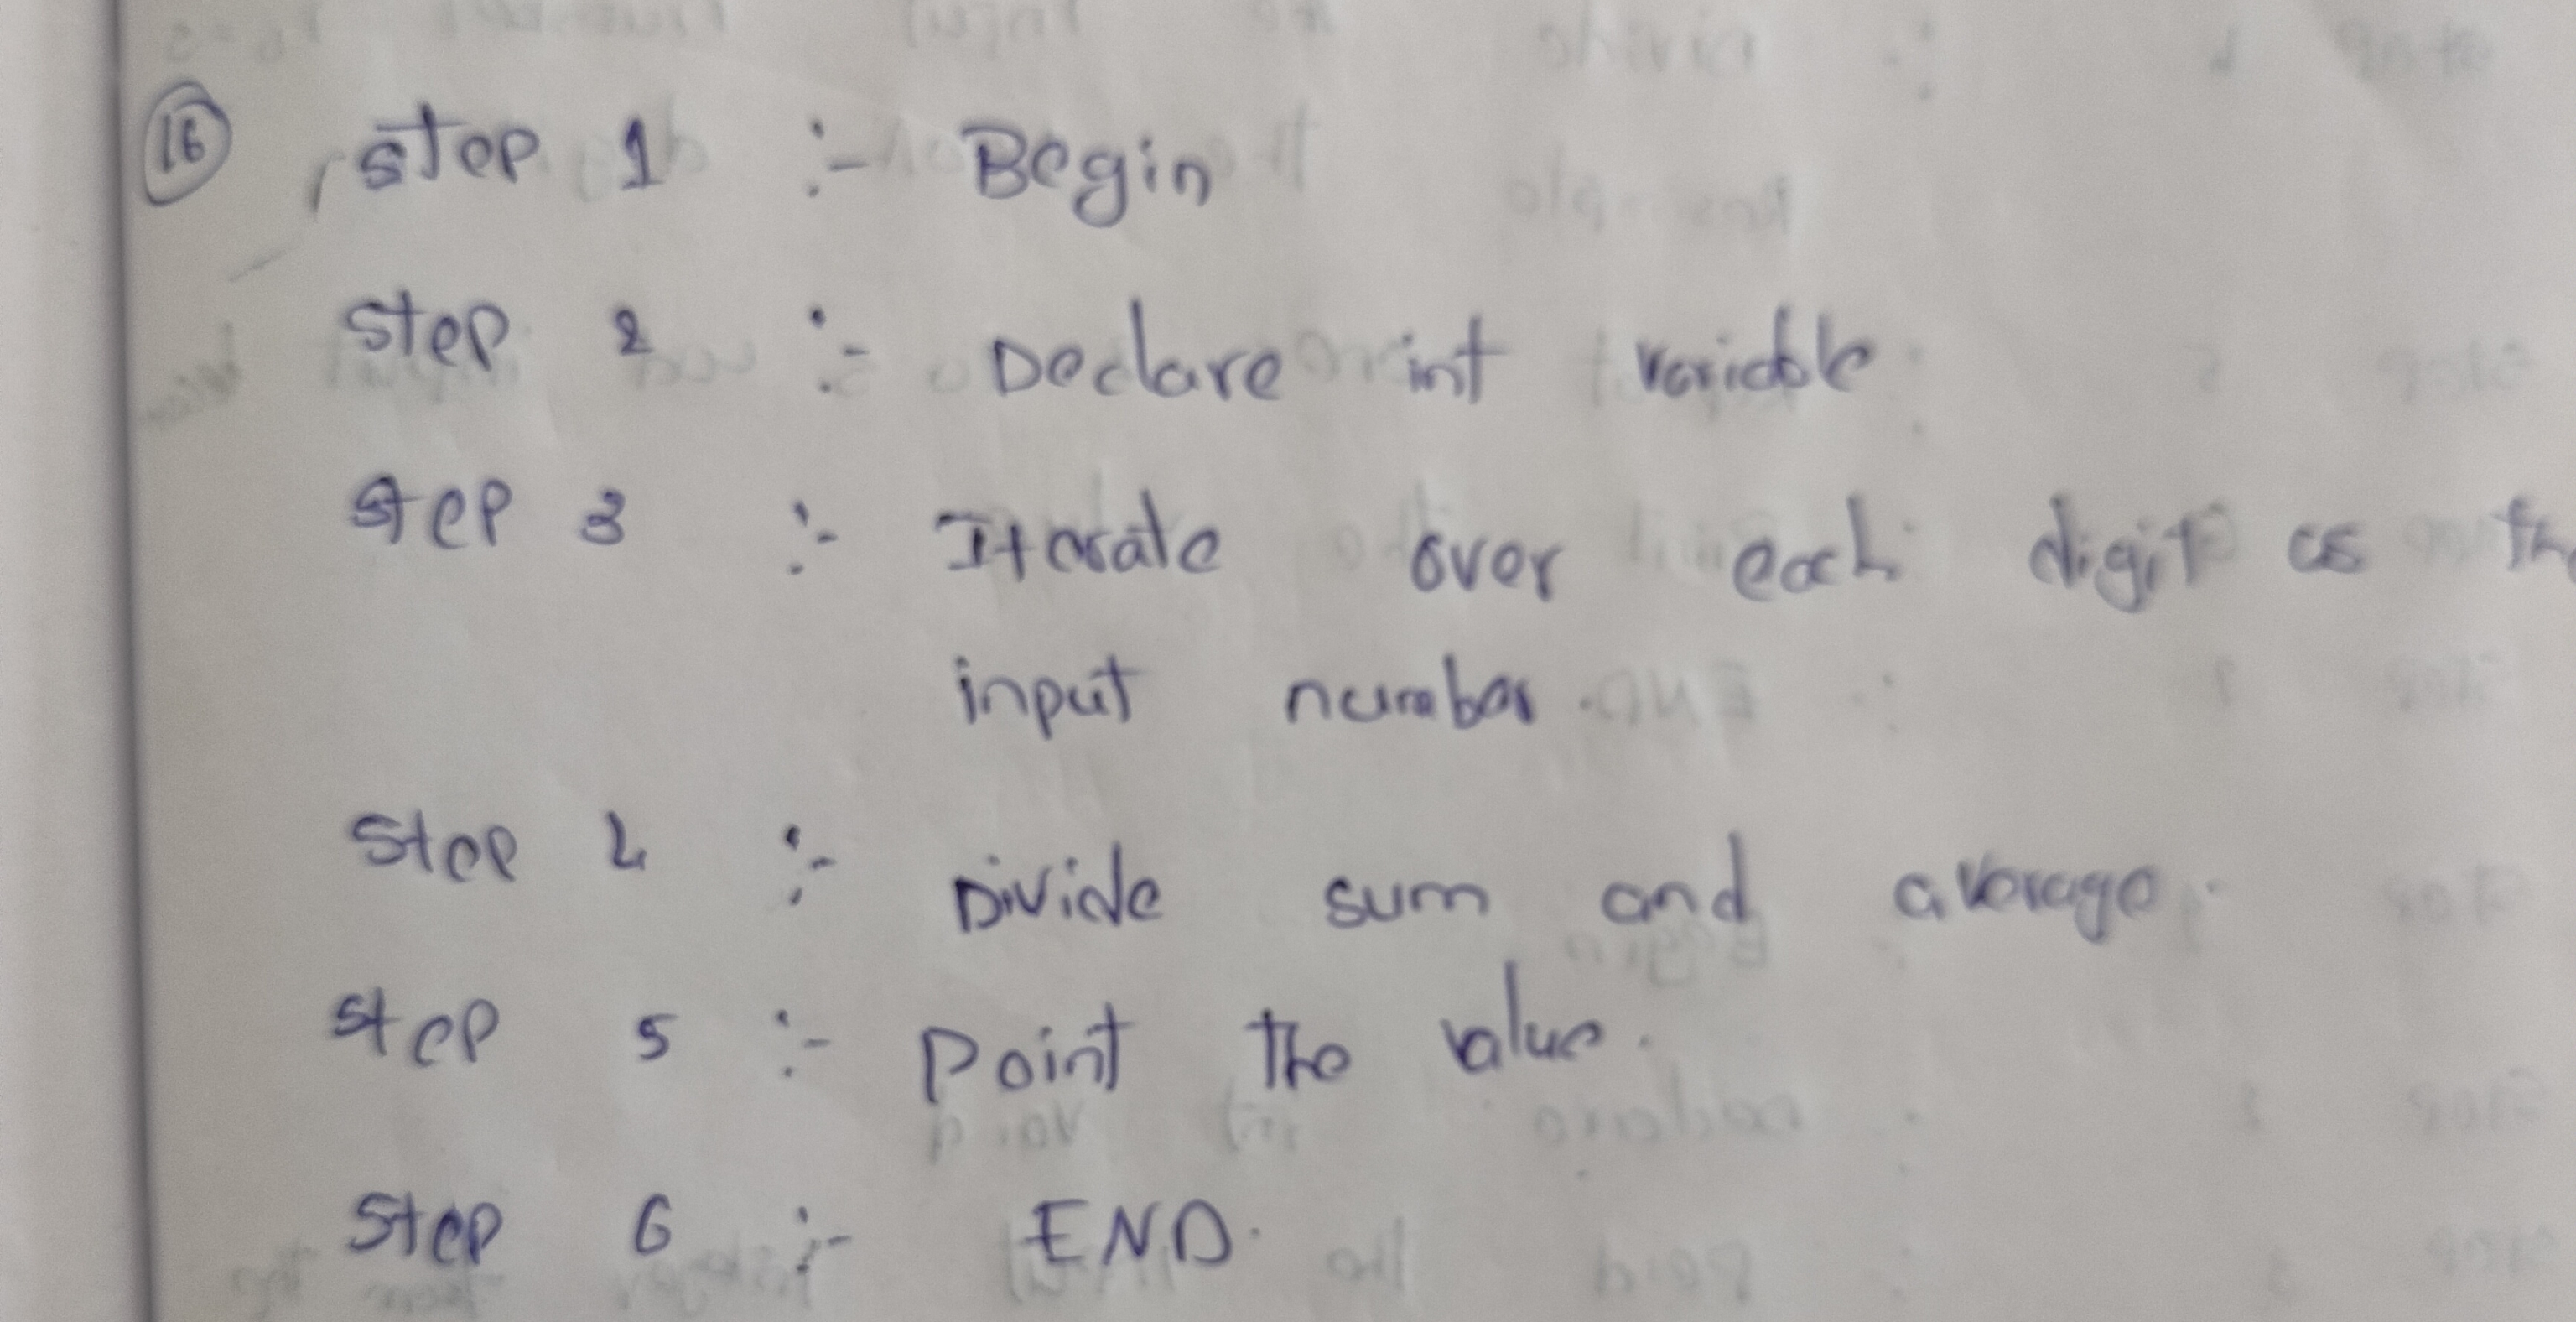 16 Step 1 :- Begin
Step 2 :- Declare int variable
Step 3 :- Iterate over each digit as the
input number
Step 4 :- Divide sum and average.
Step 5 :- Point the value.
Step 6 :- END.